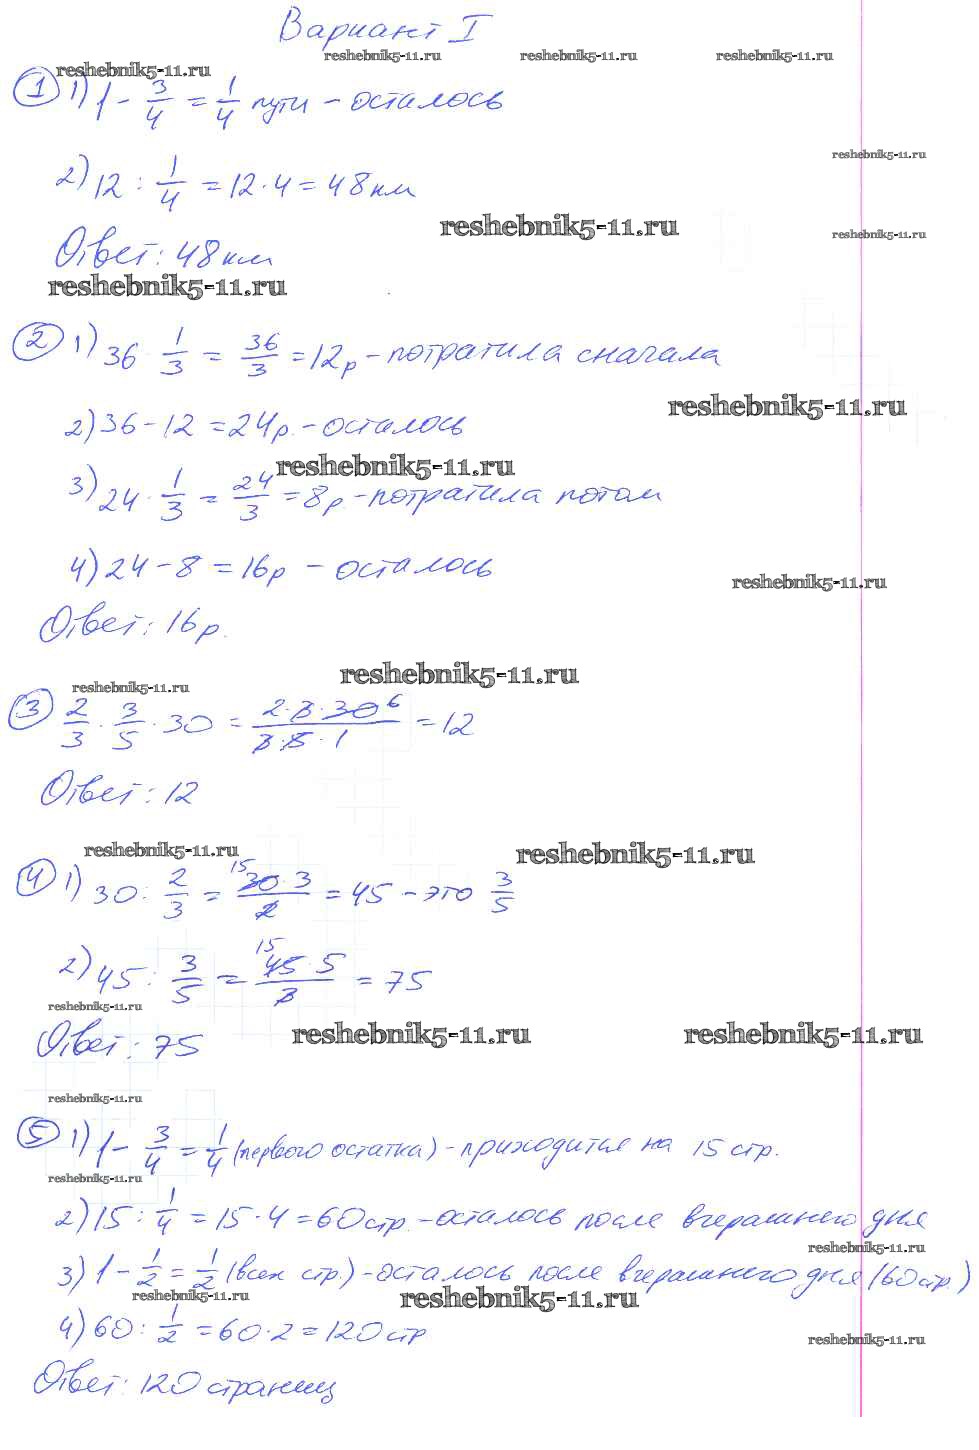 Вариант I
reshebnik5-11.ru reshebnik5-11.ru reshebnik5-11.ru
reshebnik5-11.ru
1 1) 1 - 3/4 = 1/4 пути - осталось
reshebnik5-11.ru
2) 12 : 1/4 = 12 · 4 = 48 км
reshebnik5-11.ru
reshebnik5-11.ru
Ответ: 48 км
reshebnik5-11.ru
2 1) 36 · 1/3 = 36/3 = 12 р - потратила сначала
reshebnik5-11.ru
2) 36 - 12 = 24 р. - осталось
reshebnik5-11.ru
3) 24 · 1/3 = 24/3 = 8 р. - потратила потом
4) 24 - 8 = 16 р - осталось
reshebnik5-11.ru
Ответ: 16 р.
reshebnik5-11.ru
reshebnik5-11.ru
3 2/3 · 3/5 · 30 = 2 · 3 · 30 6 / 3 · 5 · 1 = 12
Ответ: 12
reshebnik5-11.ru reshebnik5-11.ru
4 1) 30 : 2/3 = 15 30 · 3 / 2 = 45 - это 3/5
2) 45 : 3/5 = 15 45 · 5 / 3 = 75
reshebnik5-11.ru
reshebnik5-11.ru reshebnik5-11.ru
Ответ: 75
reshebnik5-11.ru
5 1) 1 - 3/4 = 1/4 (первого остатка) - приходится на 15 стр.
reshebnik5-11.ru
2) 15 : 1/4 = 15 · 4 = 60 стр. - осталось после вчерашнего дня
reshebnik5-11.ru
3) 1 - 1/2 = 1/2 (всех стр.) - осталось после вчерашнего дня (60 стр.)
reshebnik5-11.ru reshebnik5-11.ru
4) 60 : 1/2 = 60 · 2 = 120 стр
reshebnik5-11.ru
Ответ: 120 страниц